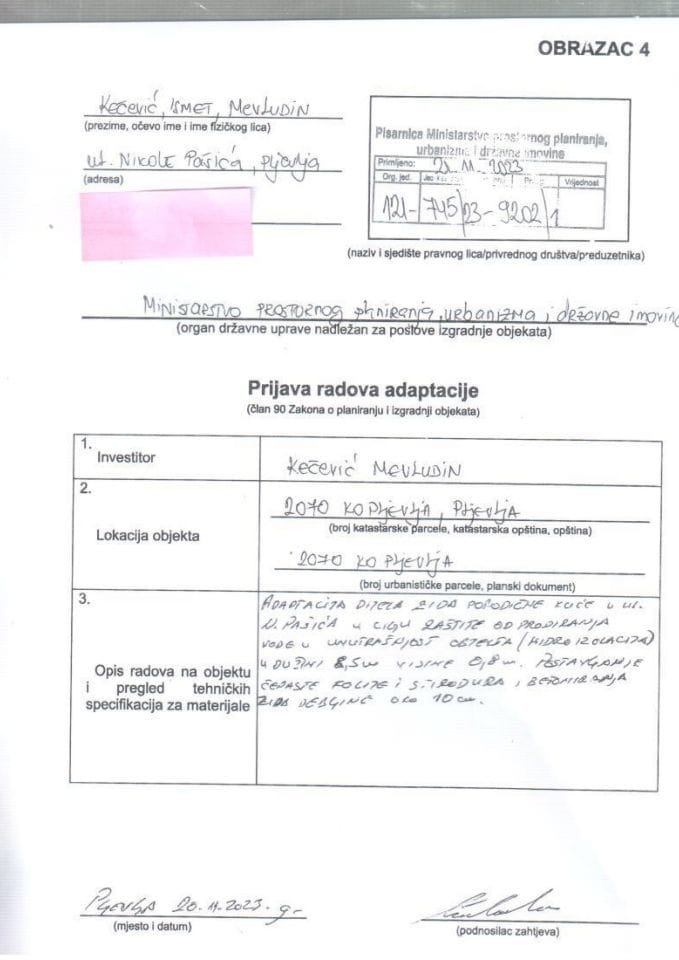 OBRAZAC 4
Kečević, ISMET, Mevludin
(prezime, očevo ime i ime fizičkog lica)
ul. Nikole Pašića, Pljevlja
(adresa)
Pisarnica Ministarstvo prostornog planiranja,
urbanizma i državne imovine
Primljeno: 21. 11. 2023
Org. jed. Jed. Prilog Vrijednost
121- 745/23-9202/1
(naziv i sjedište pravnog lica/privrednog društva/preduzetnika)
Ministarstvo prostornog planiranja, urbanizma i državne imovine
(organ državne uprave nadležan za poslove izgradnje objekata)
Prijava radova adaptacije
(član 90 Zakona o planiranju i izgradnji objekata)
1.
Investitor
Kečević Mevludin
2.
Lokacija objekta
2070 KO Pljevlja, Pljevlja
(broj katastarske parcele, katastarska opština, opština)
2070 KO Pljevlja
(broj urbanističke parcele, planski dokument)
3.
Opis radova na objektu
i pregled tehničkih
specifikacija za materijale
ADAPTACIJA DIJELA ZIDA PORODIČNE KUĆE U UL.
N. PAŠIĆA U CILJU ZAŠTITE OD PRODIRANJA
VODE U UNUTRAŠNJOST OBJEKTA (HIDROIZOLACIJA)
U DUŽINI 8,5m VISINE 0,8m. POSTAVLJANJE
ČEPASTE FOLIJE I STIRODURA, I BETONIRANJA
ZIDA DEBLJINE OKO 10cm.
Pljevlja 20.11.2023. g.
(mjesto i datum)
(podnosilac zahtjeva)